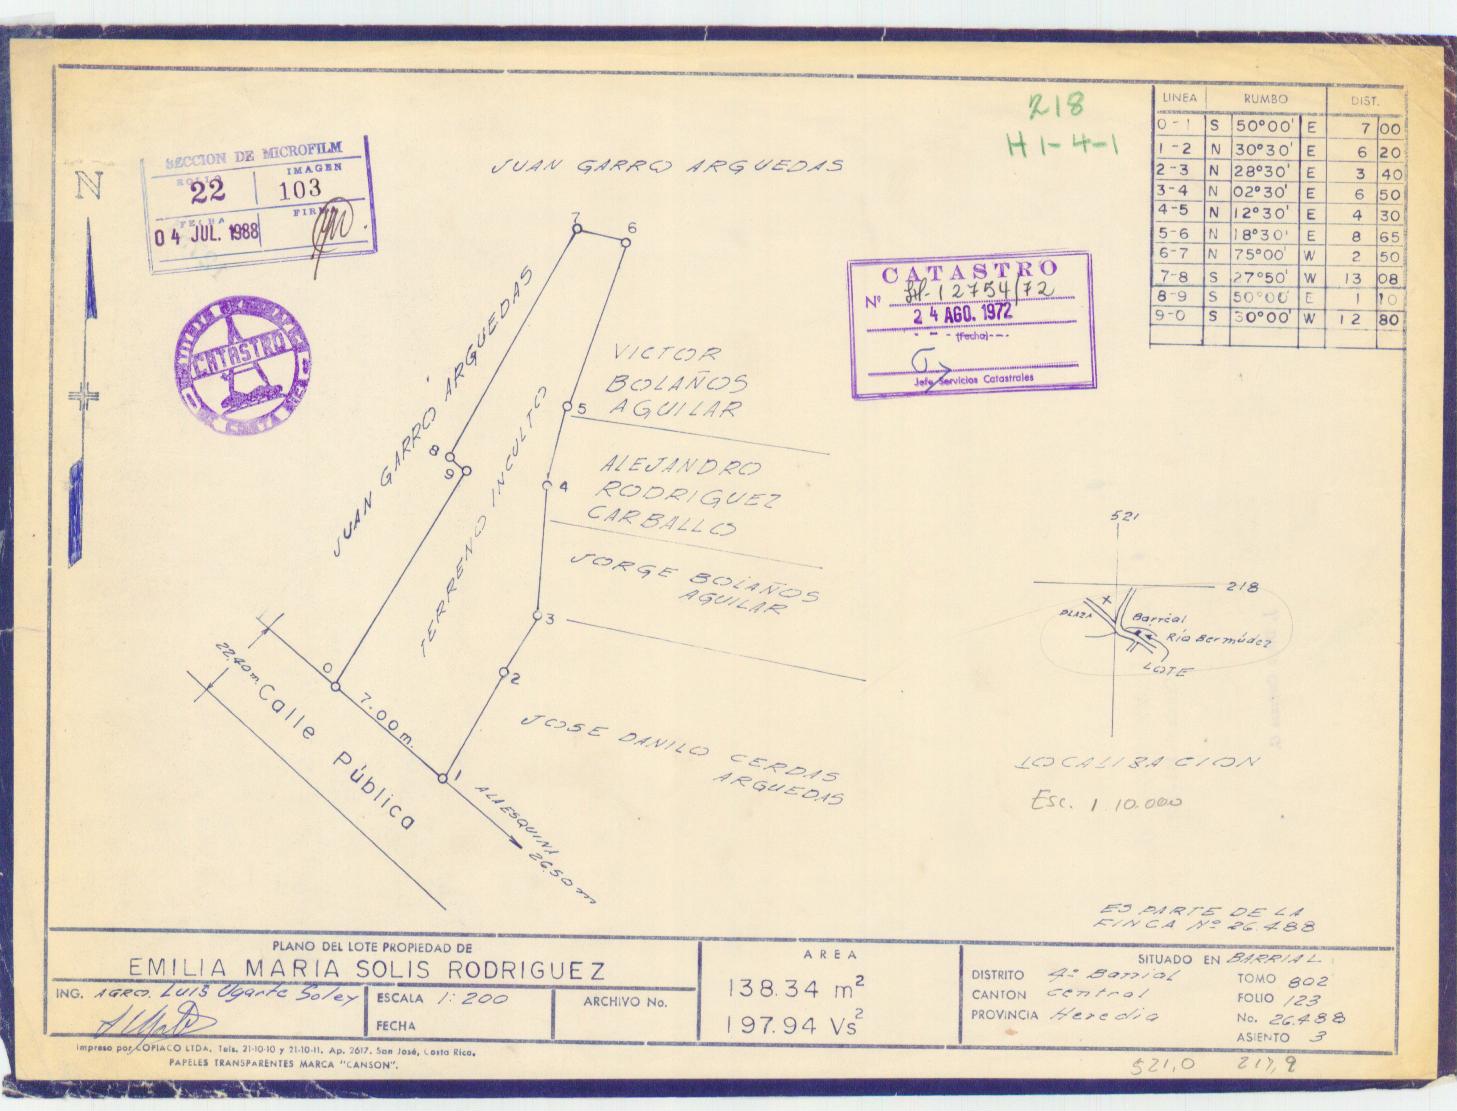 218
H 1-4-1
SECCION DE MICROFILM
ROLLO IMAGEN
22 103
FECHA FIRMA
04 JUL. 1988
N
CATASTRO
DE COSTA RICA
JUAN GARRO ARGUEDAS
LINEA RUMBO DIST.
0-1 S 50°00' E 7 00
1-2 N 30°30' E 6 20
2-3 N 28°30' E 3 40
3-4 N 02°30' E 6 50
4-5 N 12°30' E 4 30
5-6 N 18°30' E 8 65
6-7 N 75°00' W 2 50
7-8 S 27°50' W 13 08
8-9 S 50°00' E 1 10
9-0 S 30°00' W 12 80
CATASTRO
Nº H-12754/72
24 AGO. 1972
(Fecha)
Jefe Servicios Catastrales
7
6
JUAN GARRO ARGUEDAS
TERRENO INCULTO
VICTOR
BOLAÑOS
AGUILAR
5
8
9
4
ALEJANDRO
RODRIGUEZ
CARBALLO
JORGE BOLAÑOS
AGUILAR
3
2
0
1
22.40 m.
7.00 m.
Calle Pública
JOSE DANILO CERDAS
ARGUEDAS
A LA ESQUINA
26.50 m
521
218
PLAZA
Barrial
Río Bermúdez
LOTE
LOCALIZACION
Esc. 1 10.000
ES PARTE DE LA
FINCA Nº 26.488
PLANO DEL LOTE PROPIEDAD DE
EMILIA MARIA SOLIS RODRIGUEZ
ING. AGRO. Luis Ugarte Soley
ESCALA 1:200
FECHA
ARCHIVO No.
AREA
138.34 m²
197.94 Vs²
SITUADO EN BARRIAL
DISTRITO 4º Barrial
CANTON Central
PROVINCIA Heredia
TOMO 802
FOLIO 123
No. 26.488
ASIENTO 3
Impreso por COPIACO LTDA, Tels. 21-10-10 y 21-10-11. Ap. 2617. San José, Costa Rica.
PAPELES TRANSPARENTES MARCA "CANSON".
521,0 217,9